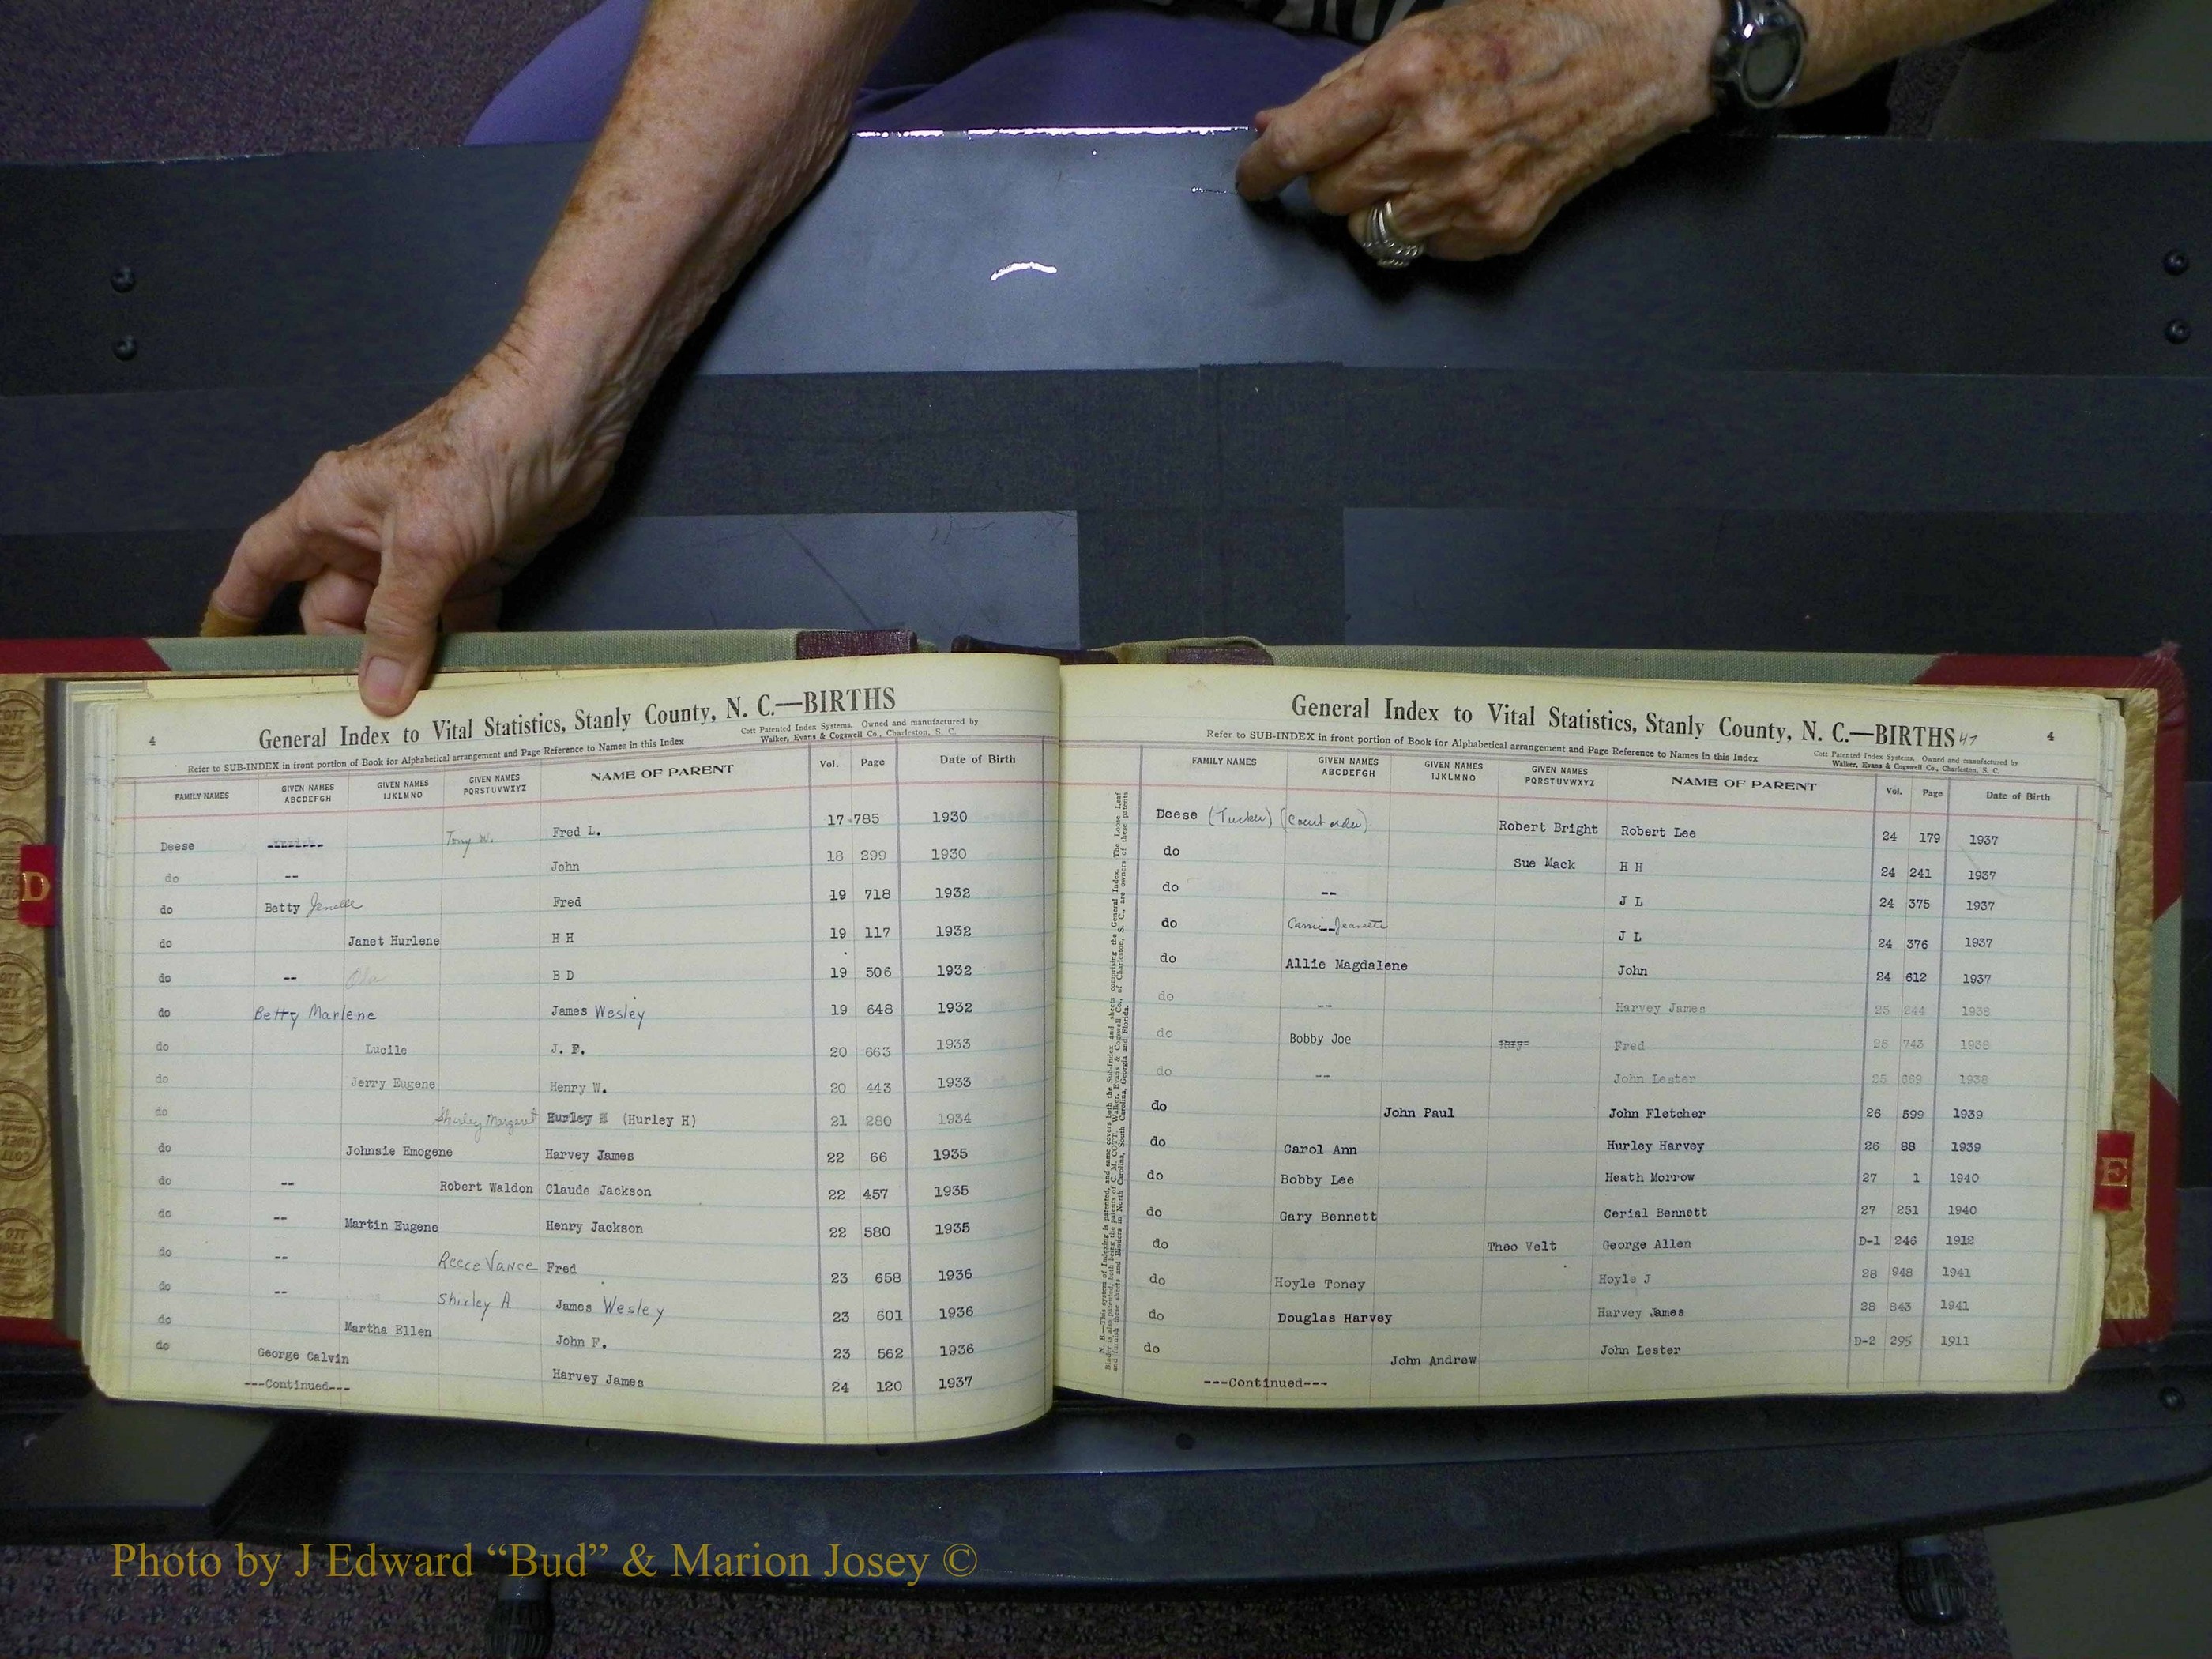 4
General Index to Vital Statistics, Stanly County, N. C.—BIRTHS
Refer to SUB-INDEX in front portion of Book for Alphabetical arrangement and Page Reference to Names in this Index
Cott Patented Index Systems. Owned and manufactured by
Walker, Evans & Cogswell Co., Charleston, S. C.
FAMILY NAMES GIVEN NAMES ABCDEFGH GIVEN NAMES IJKLMNO GIVEN NAMES PQRSTUVWXYZ NAME OF PARENT Vol. Page Date of Birth
Deese ------- Tony W. Fred L. 17 785 1930
do -- John 18 299 1930
do Betty Janelle Fred 19 718 1932
do Janet Hurlene H H 19 117 1932
do -- Ola B D 19 506 1932
do Betty Marlene James Wesley 19 648 1932
do Lucile J. F. 20 663 1933
do Jerry Eugene Henry W. 20 443 1933
do Shirley Margaret Hurley H (Hurley H) 21 280 1934
do Johnsie Emogene Harvey James 22 66 1935
do -- Robert Waldon Claude Jackson 22 457 1935
do -- Martin Eugene Henry Jackson 22 580 1935
do -- Reece Vance Fred 23 658 1936
do -- Shirley A James Wesley 23 601 1936
do Martha Ellen John F. 23 562 1936
do George Calvin Harvey James 24 120 1937
---Continued---
General Index to Vital Statistics, Stanly County, N. C.—BIRTHS 47
4
Refer to SUB-INDEX in front portion of Book for Alphabetical arrangement and Page Reference to Names in this Index
Cott Patented Index Systems. Owned and manufactured by
Walker, Evans & Cogswell Co., Charleston, S. C.
FAMILY NAMES GIVEN NAMES ABCDEFGH GIVEN NAMES IJKLMNO GIVEN NAMES PQRSTUVWXYZ NAME OF PARENT Vol. Page Date of Birth
Deese (Tucker) (Court order) Robert Bright Robert Lee 24 179 1937
do Sue Mack H H 24 241 1937
do -- J L 24 375 1937
do Carrie Jeanette J L 24 376 1937
do Allie Magdalene John 24 612 1937
do -- Harvey James 25 244 1938
do Bobby Joe Fred 25 743 1938
do -- John Lester 25 669 1938
do John Paul John Fletcher 26 599 1939
do Carol Ann Hurley Harvey 26 88 1939
do Bobby Lee Heath Morrow 27 1 1940
do Gary Bennett Cerial Bennett 27 251 1940
do Theo Velt George Allen D-1 246 1912
do Hoyle Toney Hoyle J 28 948 1941
do Douglas Harvey Harvey James 28 843 1941
do John Andrew John Lester D-2 295 1911
---Continued---
D
E
Photo by J Edward “Bud” & Marion Josey ©